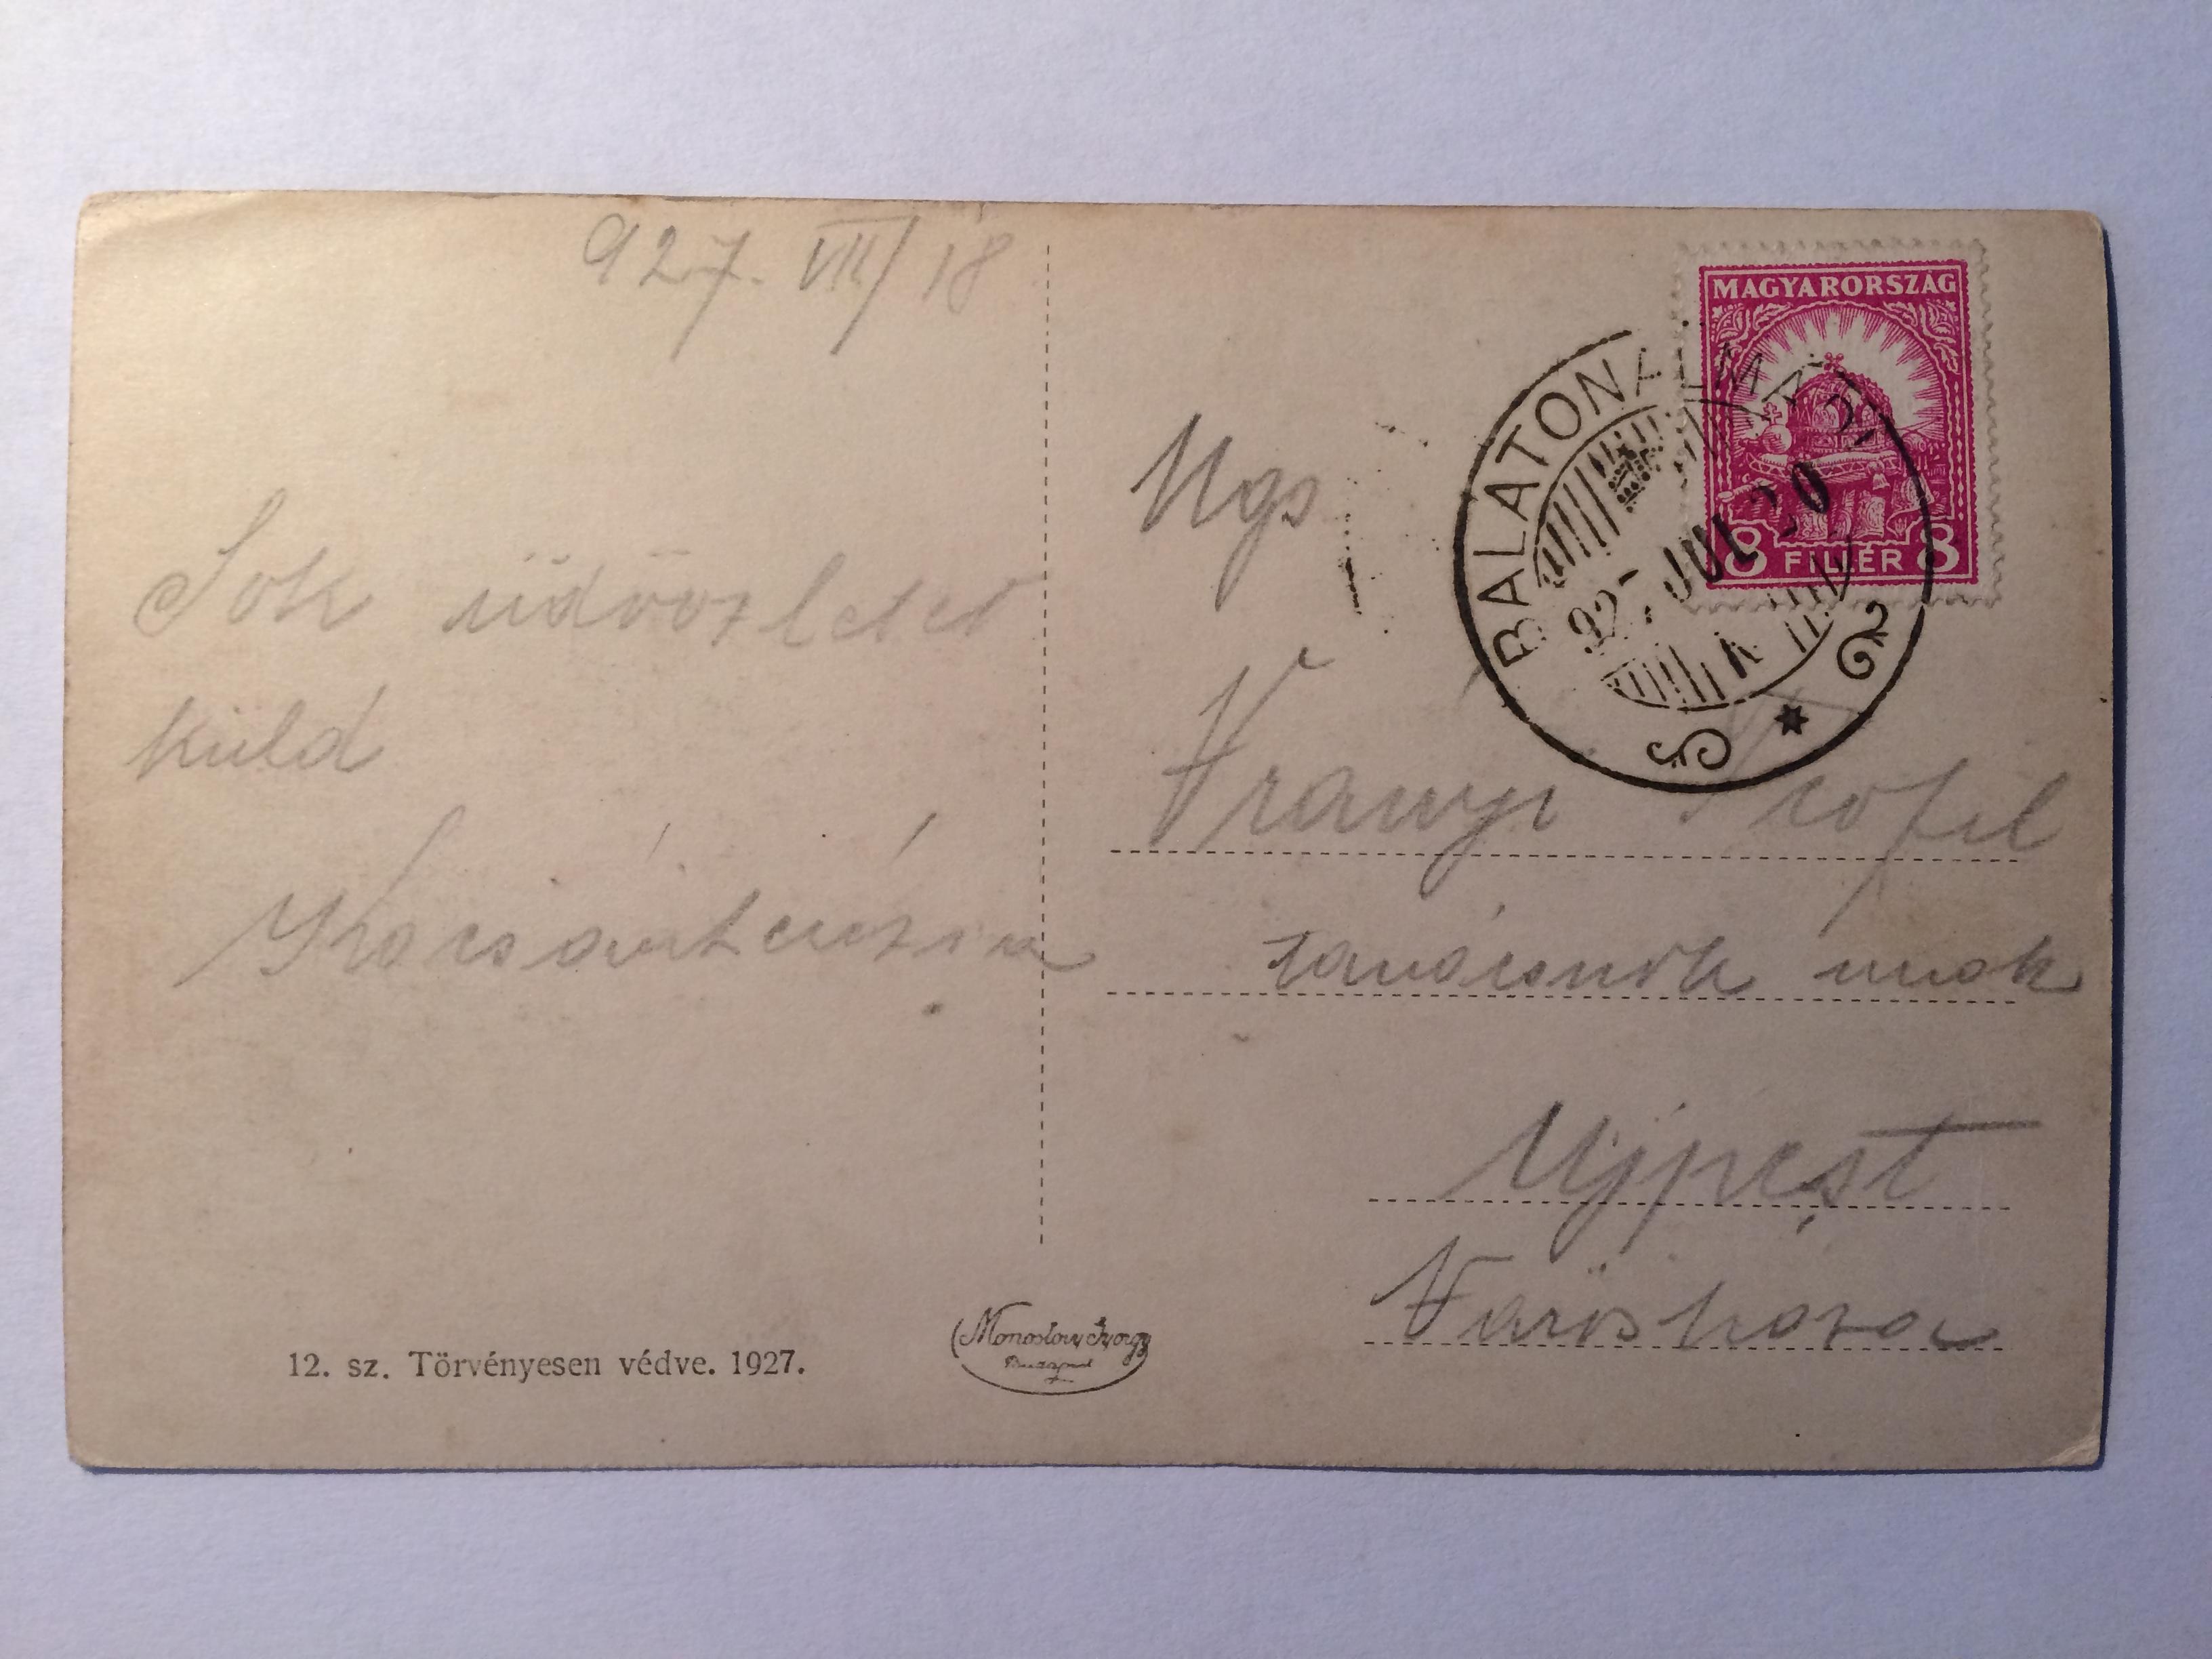 927. VII/18
Sok üdvözletet
küld
MAGYARORSZÁG
8 FILLÉR 8
BALATONALMÁDI
927 JUL 20
Ngs
Vrányi Teofil
tanácsnok urnak
Ujpest
Városháza
12. sz. Törvényesen védve. 1927.
Monostory György
Budapest